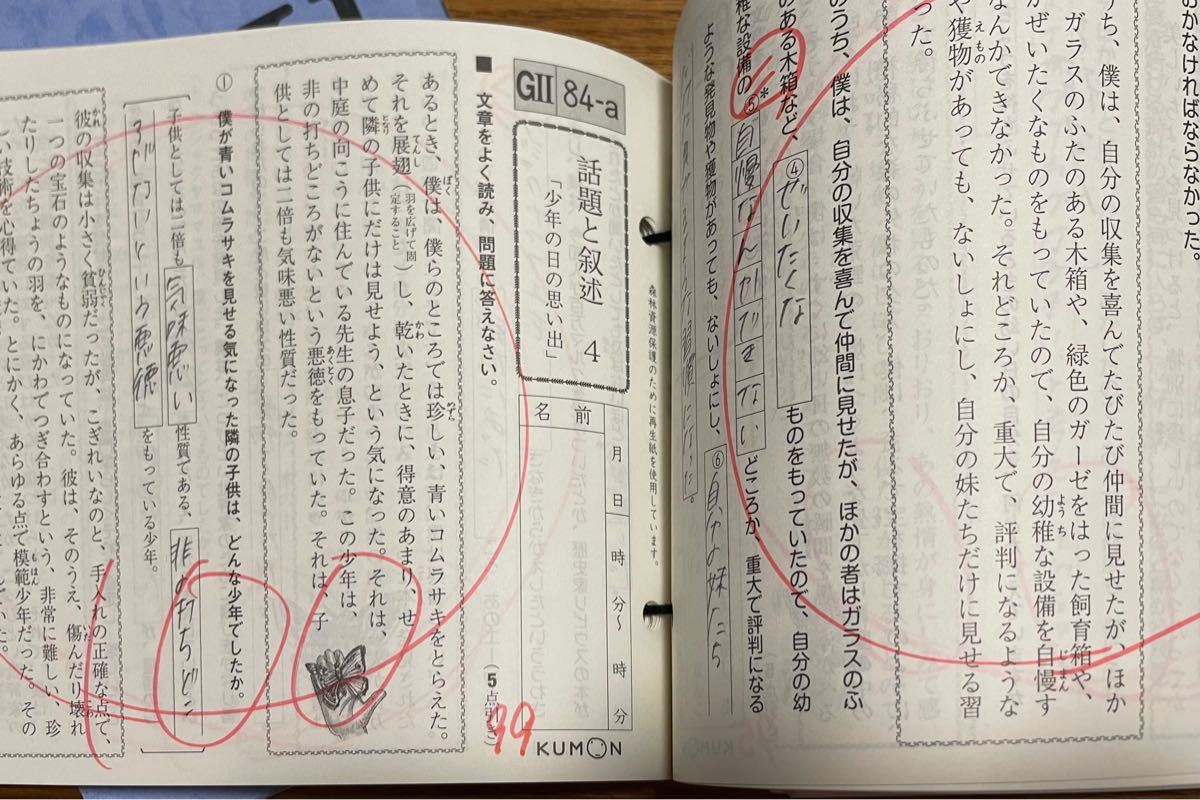 おかなければならなかった。
うち、僕は、自分の収集を喜んでたびたび仲間に見せたが、ほか
ガラスのふたのある木箱や、緑色のガーゼをはった飼育箱や、
がぜいたくなものをもっていたので、自分の幼稚な設備を自慢す
なんかできなかった。それどころか、重大で、評判になるような
や獲物があっても、ないしょにし、自分の妹たちだけに見せる習
った。
のうち、僕は、自分の収集を喜んで仲間に見せたが、ほかの者はガラスのふ
のある木箱など、④ぜいたくなものをもっていたので、自分の幼
稚な設備の⑤*自慢なんかできないどころか、重大で評判になる
ような発見物や獲物があっても、ないしょにし、⑥自分の妹たち
習慣になった
森林資源保護のために再生紙を使用しています。
GⅡ 84-a
話題と叙述 4
「少年の日の思い出」
名前
月 日 時 分〜 時 分
KUMON
■ 文章をよく読み、問題に答えなさい。
(5点引き)
99
あるとき、僕は、僕らのところでは珍しい、青いコムラサキをとらえた。
それを展翅(羽を広げて固定すること)し、乾いたときに、得意のあまり、せ
めて隣の子供にだけは見せよう、という気になった。それは、
中庭の向こうに住んでいる先生の息子だった。この少年は、
非の打ちどころがないという悪徳をもっていた。それは、子
供としては二倍も気味悪い性質だった。
① 僕が青いコムラサキを見せる気になった隣の子供は、どんな少年でしたか。
子供としては二倍も気味悪い性質である、非の打ちどこ
ろがないという悪徳をもっている少年。
彼の収集は小さく貧弱だったが、こぎれいなのと、手入れの正確な点で、
一つの宝石のようなものになっていた。彼は、そのうえ、傷んだり壊れ
たりしたちょうの羽を、にかわでつぎ合わすという、非常に難しい、珍
しい技術を心得ていた。とにかく、あらゆる点で模範少年だった。その